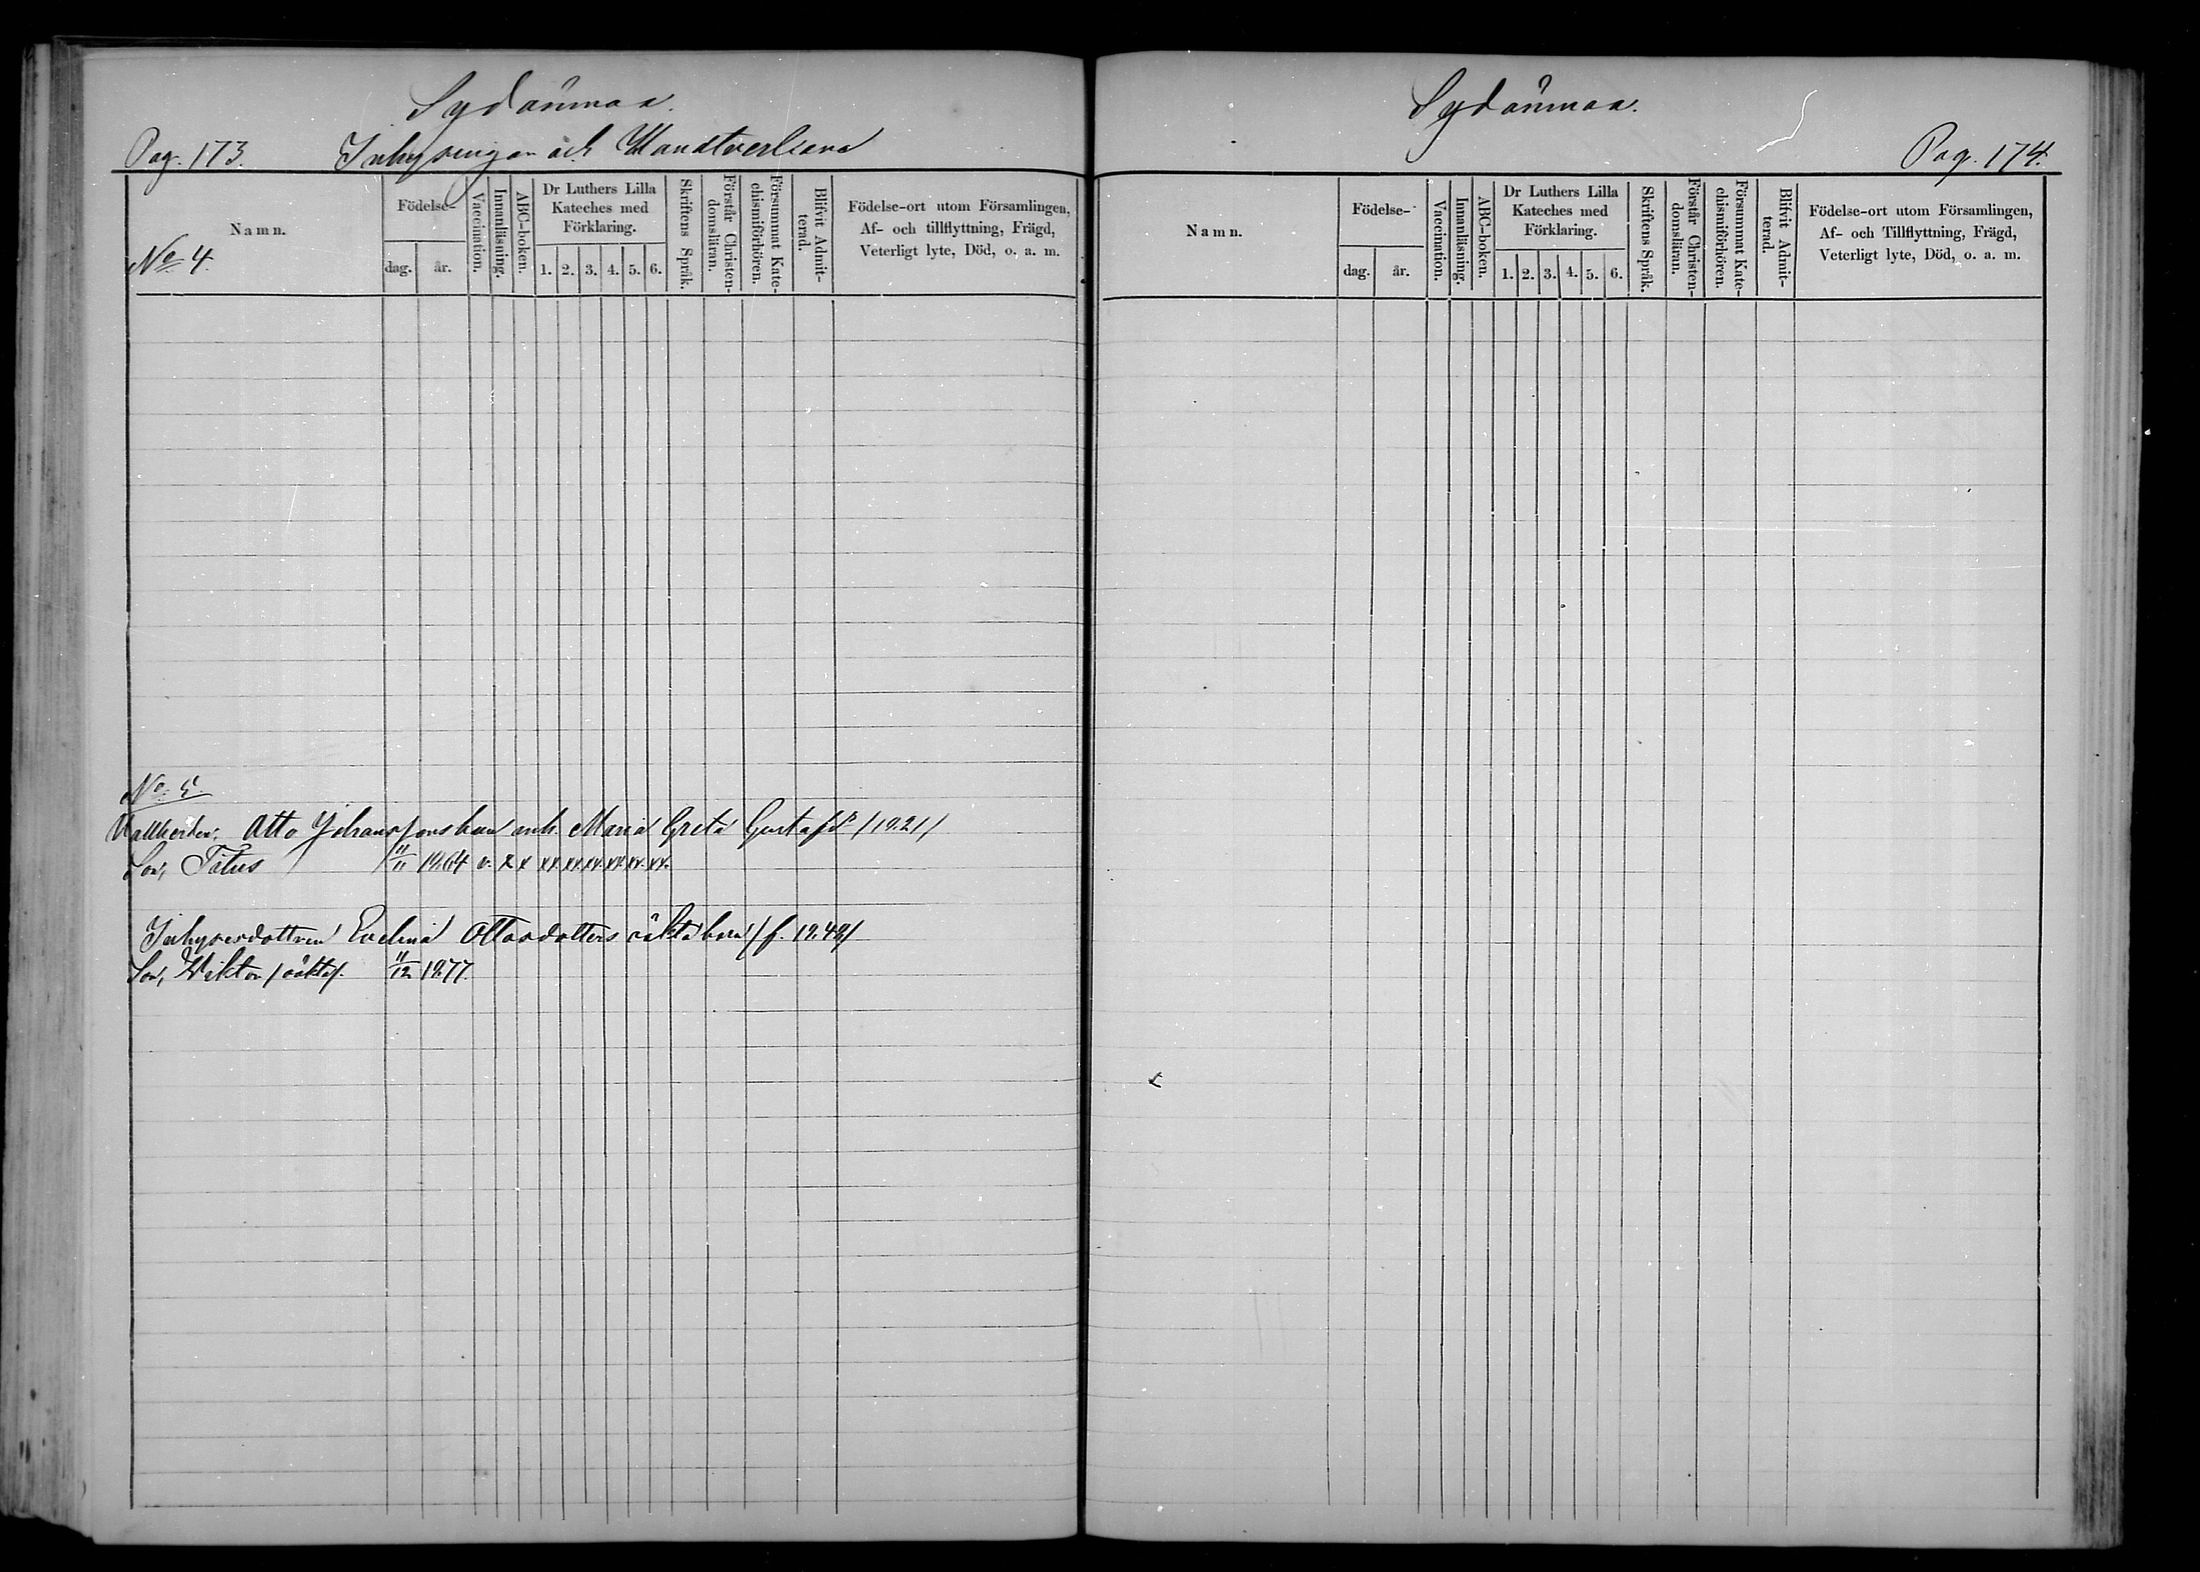 Sydänmaa.
Pag. 173. Inhysingar och Handtverkare
Namn.
Födelse-
dag. år.
Vaccination.
Innanläsning.
ABC-boken.
Dr Luthers Lilla
Kateches med
Förklaring.
1. 2. 3. 4. 5. 6.
Skriftens Språk.
Förstår Christen-
domsläran.
Försummat Kate-
chismiförhören.
Blifvit Admit-
terad.
Födelse-ort utom Församlingen,
Af- och tillflyttning, Frägd,
Veterligt lyte, Död, o. a. m.
No 4.
No 5.
Otto Johanssons barn m. h. Maria Greta Gustafsd. /1821/
Son, Titus 11/11 1864 v. x x xx xx xx xx xx xx.
Inhysesdottren Evelina Ottosdotters oäkta barn /f. 1848/
Son, Wiktor /oäkta/. 11/12 1877.
Sydänmaa.
Pag. 174.
Namn.
Födelse-
dag. år.
Vaccination.
Innanläsning.
ABC-boken.
Dr Luthers Lilla
Kateches med
Förklaring.
1. 2. 3. 4. 5. 6.
Skriftens Språk.
Förstår Christen-
domsläran.
Försummat Kate-
chismiförhören.
Blifvit Admit-
terad.
Födelse-ort utom Församlingen,
Af- och Tillflyttning, Frägd,
Veterligt lyte, Död, o. a. m.